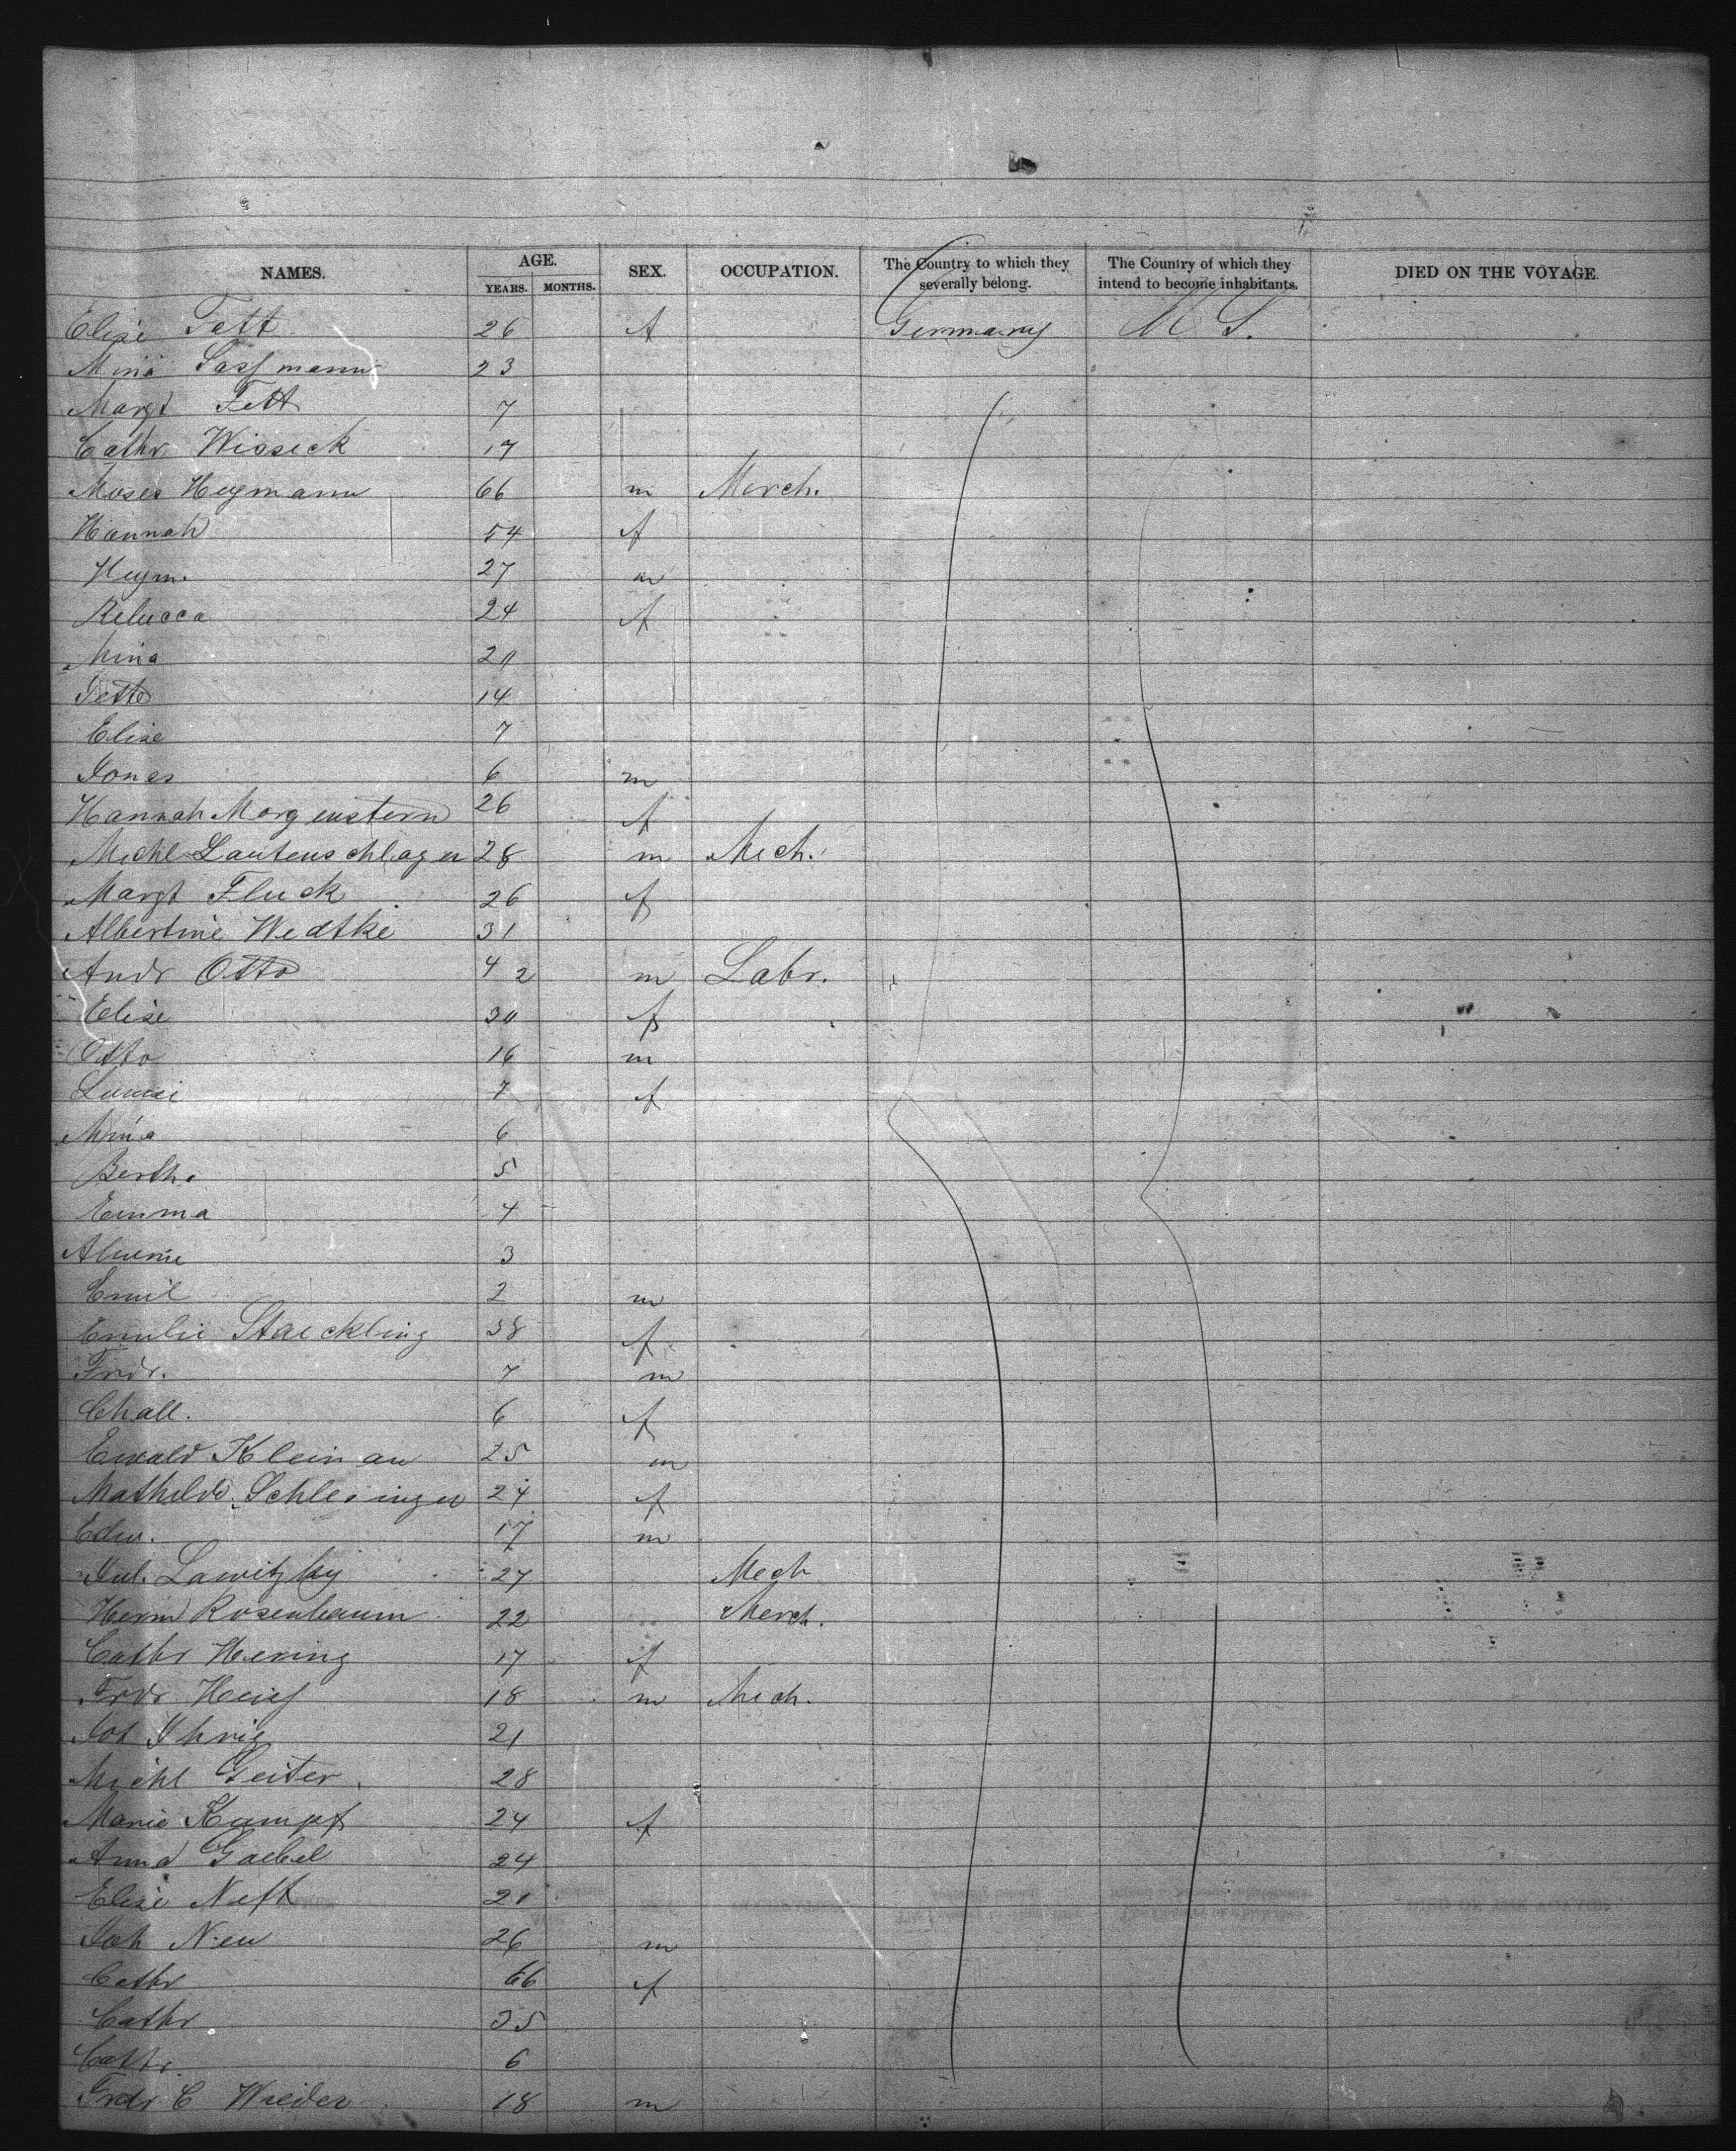 NAMES. AGE. SEX. OCCUPATION. The Country to which they severally belong. The Country of which they intend to become inhabitants. DIED ON THE VOYAGE.
YEARS. MONTHS.
Elise Fett 26 f Germany U S.
Mina Sassmann 23
Margt Fett 7
Cathr Wisseck 17
Moses Heymann 66 m Merch.
Hannah 54 f
Heym. 27 m
Rebecca 24 f
Mina 20
Jette 14
Elise 7
Jonas 6 m
Hannah Morgenstern 26 f
Michl Lautenschlager 28 m Mech.
Margt Fluck 26 f
Albertine Wedtke 31
Andr Otto 42 m Labr.
Elise 30 f
Otto 16 m
Louise 7 f
Mina 6
Bertha 5
Emma 4
Alwine 3
Emil 2 m
Emilie Staeckling 38 f
Fredr. 7 m
Chall. 6 f
Ewald Kleinau 25 m
Mathilde Schlesinger 24 f
Edw. 17 m
Jul. Lawitzky 27 Mech
Herm Rosenbaum 22 Merch.
Cathr Hering 17 f
Frdr Heuss 18 m Mech.
Jos Ihrig 21
Michl Geiter 28
Marie Kumpf 24 f
Anna Gaebel 24
Elise Neft 21
Joh Neu 26 m
Cathr 66 f
Cathr 35
Cathr. 6
Fredr C Wieder 18 m